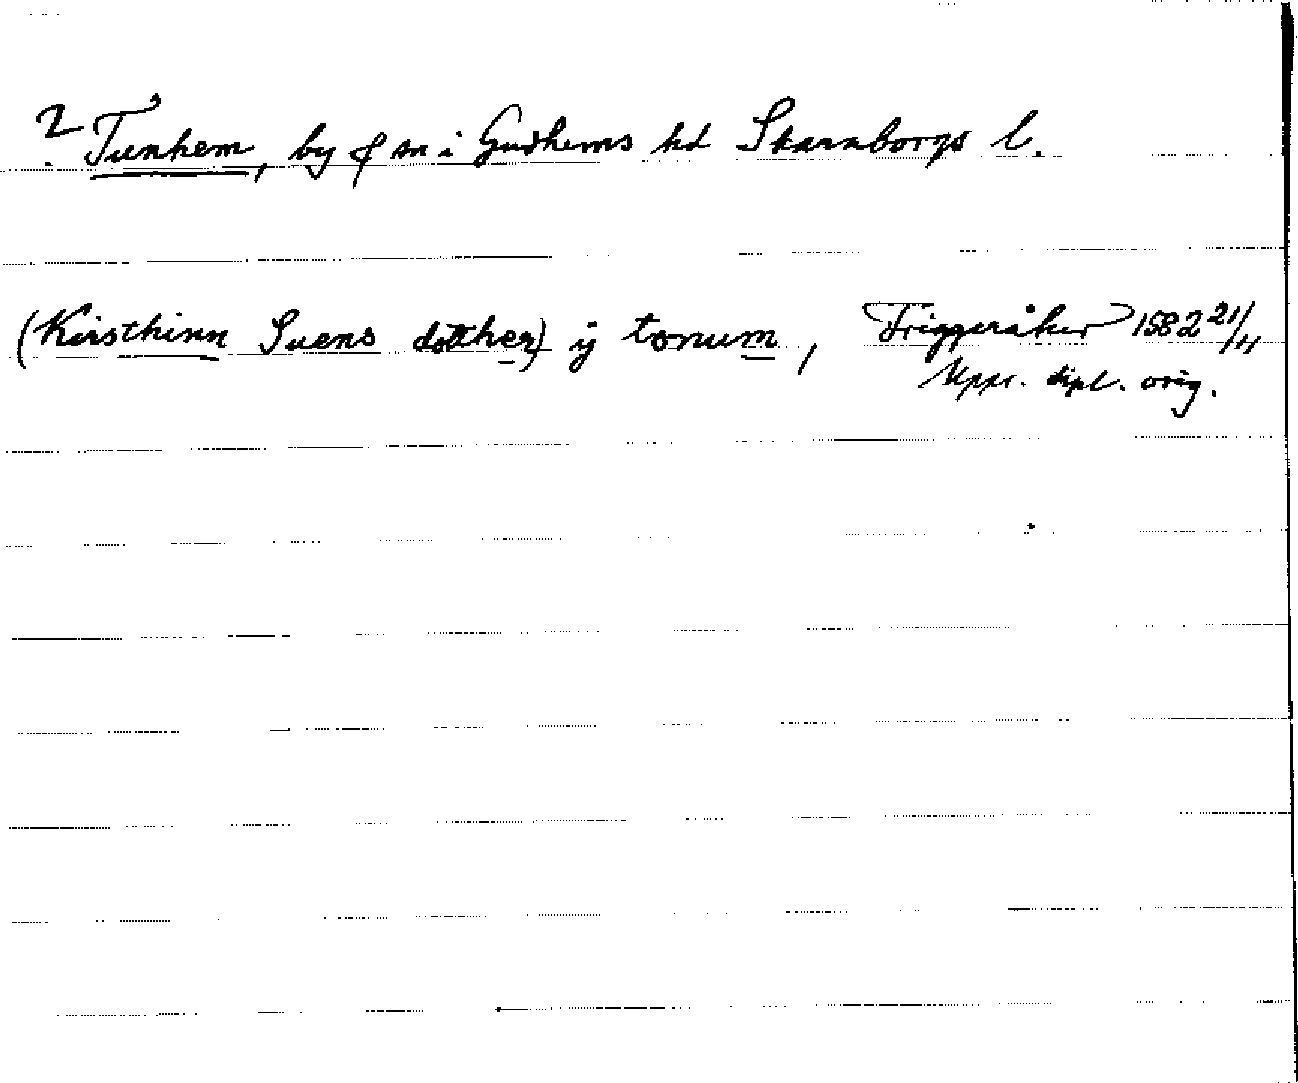 ? Tunhem, by & sn i Gudhems hd Skaraborgs l.
(Kirsthinn Suens dotther) ij tonum, Friggeråker 1582 21/11
Uppr. dipl. orig.